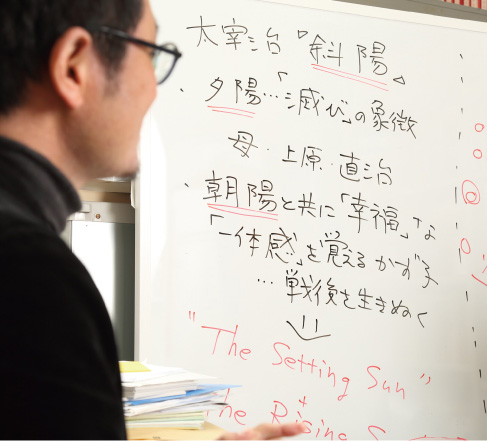 太宰治『斜陽』
・夕陽…「滅び」の象徴
母・上原・直治
・朝陽と共に「幸福」な
「一体感」を覚えるかず子
…戦後を生きぬく
"The Setting Sun"
The Rising S